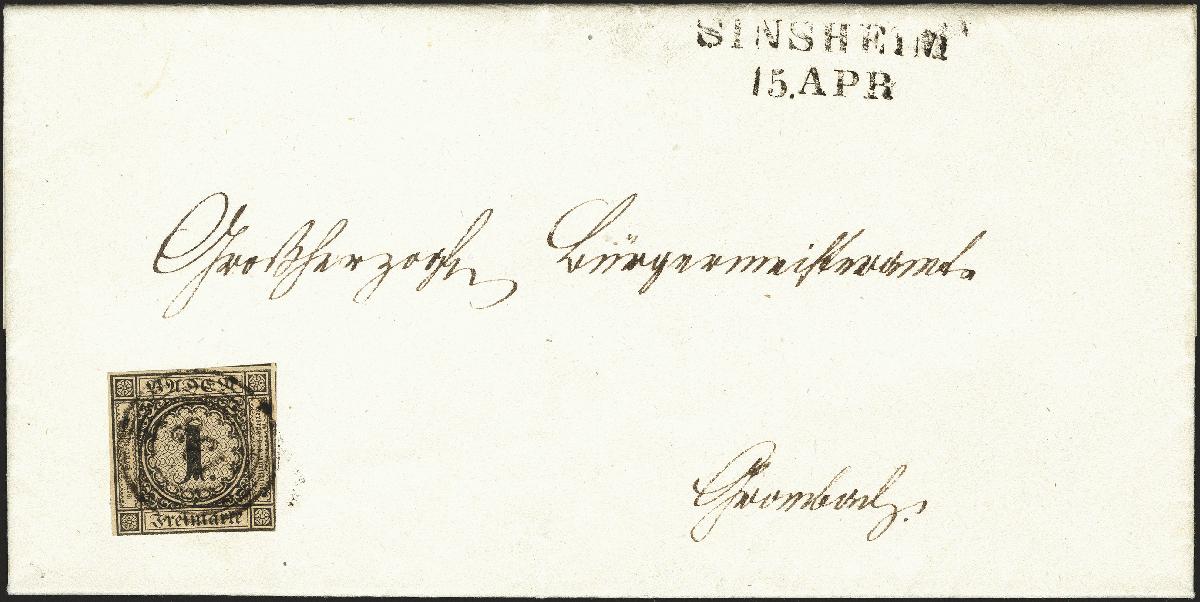 SINSHEIM
15. APR
Großherzogl. Bürgermeisteramt.
BADEN
1
Freimarke
Grombach.